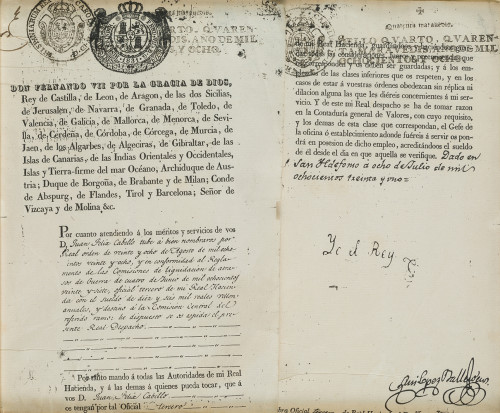 DON FERNANDO VII POR LA GRACIA DE DIOS,
Rey de Castilla, de Leon, de Aragon, de las dos Sicilias,
de Jerusalen, de Navarra, de Granada, de Toledo, de
Valencia, de Galicia, de Mallorca, de Menorca, de Sevi-
lla, de Cerdeña, de Córdoba, de Córcega, de Murcia, de
Jaen, de los Algarbes, de Algeciras, de Gibraltar, de las
Islas de Canarias, de las Indias Orientales y Occidentales,
Islas y Tierra-firme del mar Océano, Archiduque de Aus-
tria; Duque de Borgoña, de Brabante y de Milan; Conde
de Abspurg, de Flandes, Tirol y Barcelona; Señor de
Vizcaya y de Molina &c.
Por cuanto atendiendo á los méritos y servicios de vos
D. Juan Felix Cabello tube á bien nombraros por
Real orden de veinte y ocho de Agosto de mil ocho
cientos veinte y ocho, y en conformidad al Regla-
mento de las Comisiones de liquidacion de atra-
sos de Guerra de cuatro de Junio de mil ochocientos
veinte y siete, oficial tercero de mi Real Hacien-
da con el sueldo de diez y seis mil reales vellon
annales, y destino á la Comision Central del
referido ramo: he dispuesto se os espida el pre-
sente Real Despacho.
Por tanto mando á todas las Autoridades de mi Real
Hacienda, y á las demas á quienes pueda tocar, que á
vos D. Juan Felix Cabello
os tengan por tal Oficial tercero
Quarenta maravedis.
SELLO QVARTO, QVAREN-
TA MARAVEDIS, AÑO DE MIL
OCHOCIENTOS Y OCHO.
de mi Real Hacienda, guardándoos
corresponden y os deben ser guardadas; y á los em-
pleados de las clases inferiores que os respeten, y en los
casos de estar á vuestras órdenes obedezcan sin réplica ni
dilacion alguna las que les diéreis concernientes á mi ser-
vicio. Y de este mi Real despacho se ha de tomar razon
en la Contaduría general de Valores, con cuyo requisito,
y los demas de esta clase que correspondan, el Gefe de
la oficina ó establecimiento adonde fuéreis á servir os pon-
drá en posesion de dicho empleo, acreditándoos el sueldo
de él desde el dia en que aquella se verifique. Dado en
San Ildefonso á ocho de Julio de mil
ochocientos treinta y uno.
Yo el Rey